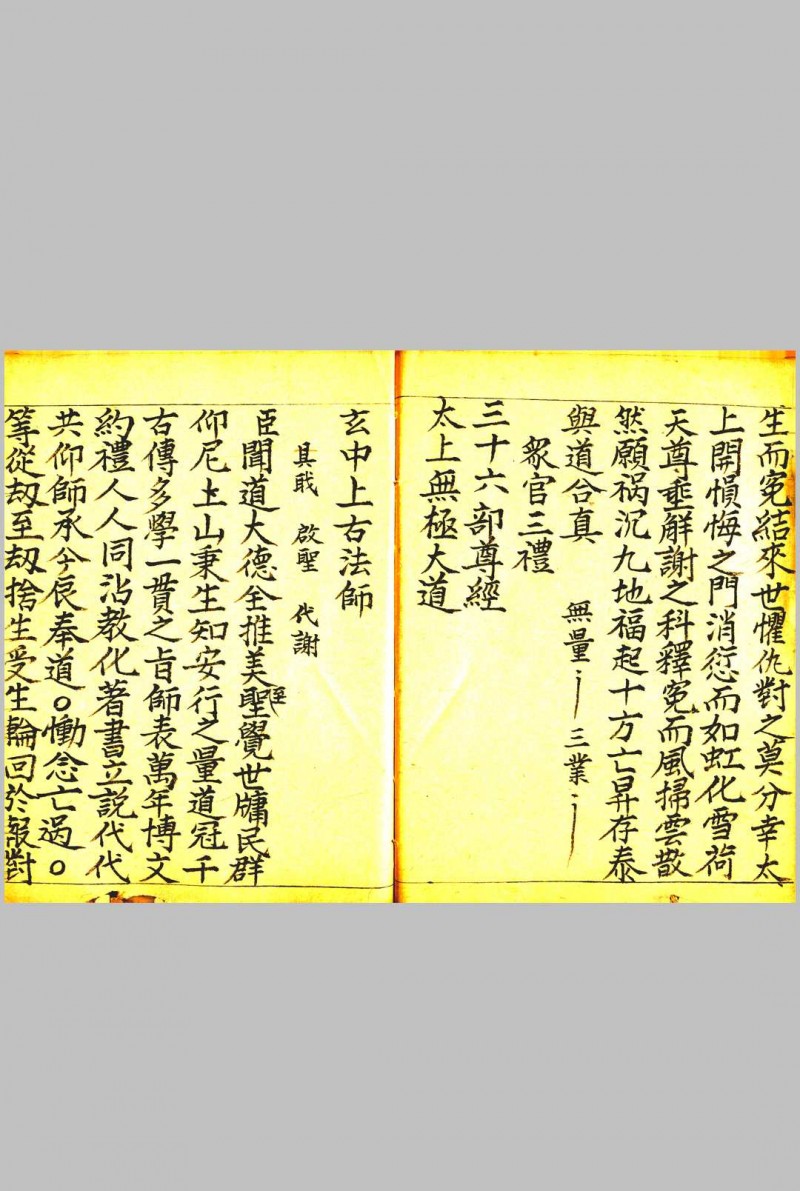 生而冤結來世懼仇對之莫分幸太
上開愪悔之門消愆而如虹化雪荷
天尊垂解謝之科釋冤而風掃雲散
然願祸沉九地福起十方亡昇存泰
與道合真 無量〻 三業〻
眾官三禮
三十六部尊經
太上無極大道
玄中上古法師
具戝 啟聖 代謝
臣聞道大德全推美聖臣覺世牖民群
仰尼土山秉生知安行之量道冠千
古傳多學一貫之旨師表萬年博文
約禮人人同沾教化著書立説代代
共仰師承兮辰奉道○慟念亡過○
等從刼至刼捨生受生輪回於報對